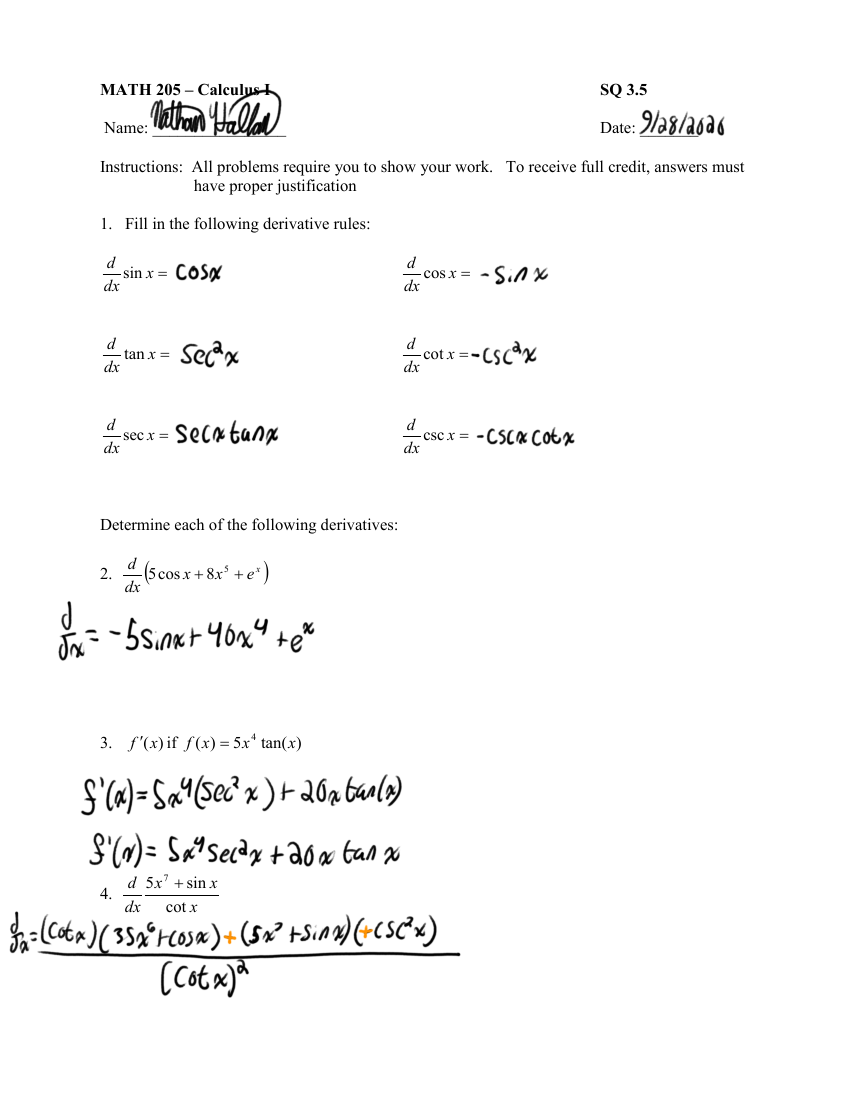 MATH 205 – Calculus I SQ 3.5
Name: Nathan Date: 9/28/2020
Instructions: All problems require you to show your work. To receive full credit, answers must
have proper justification
1. Fill in the following derivative rules:
d/dx sin x = cosx d/dx cos x = -sin x
d/dx tan x = sec²x d/dx cot x = -csc²x
d/dx sec x = secx tanx d/dx csc x = -cscx cotx
Determine each of the following derivatives:
2. d/dx (5 cos x + 8x⁵ + eˣ)
d/dx = -5sinx + 40x⁴ + eˣ
3. f′(x) if f(x) = 5x⁴ tan(x)
f'(x) = 5x⁴(sec²x) + 20x tan(x)
f'(x) = 5x⁴sec²x + 20x tan x
4. d/dx (5x⁷ + sin x)/(cot x)
d/dx = (cotx)(35x⁶+cosx)+(5x⁷+sinx)(+csc²x)
(cotx)²